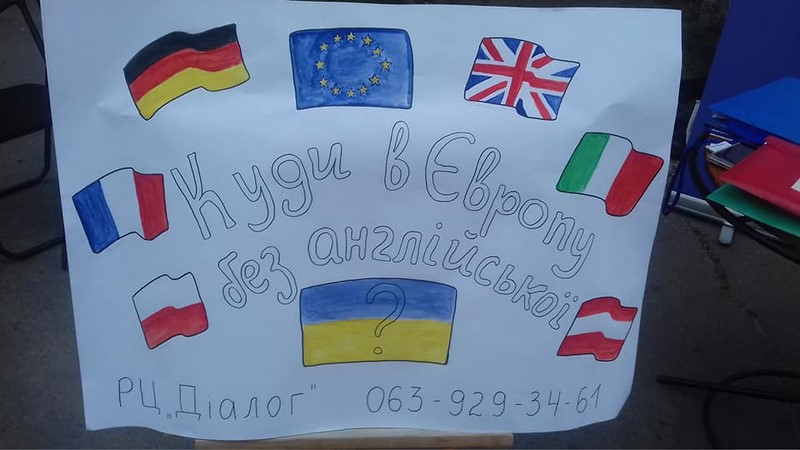 Куди в Європу
без англійської
?
РЦ „Діалог" 063-929-34-61